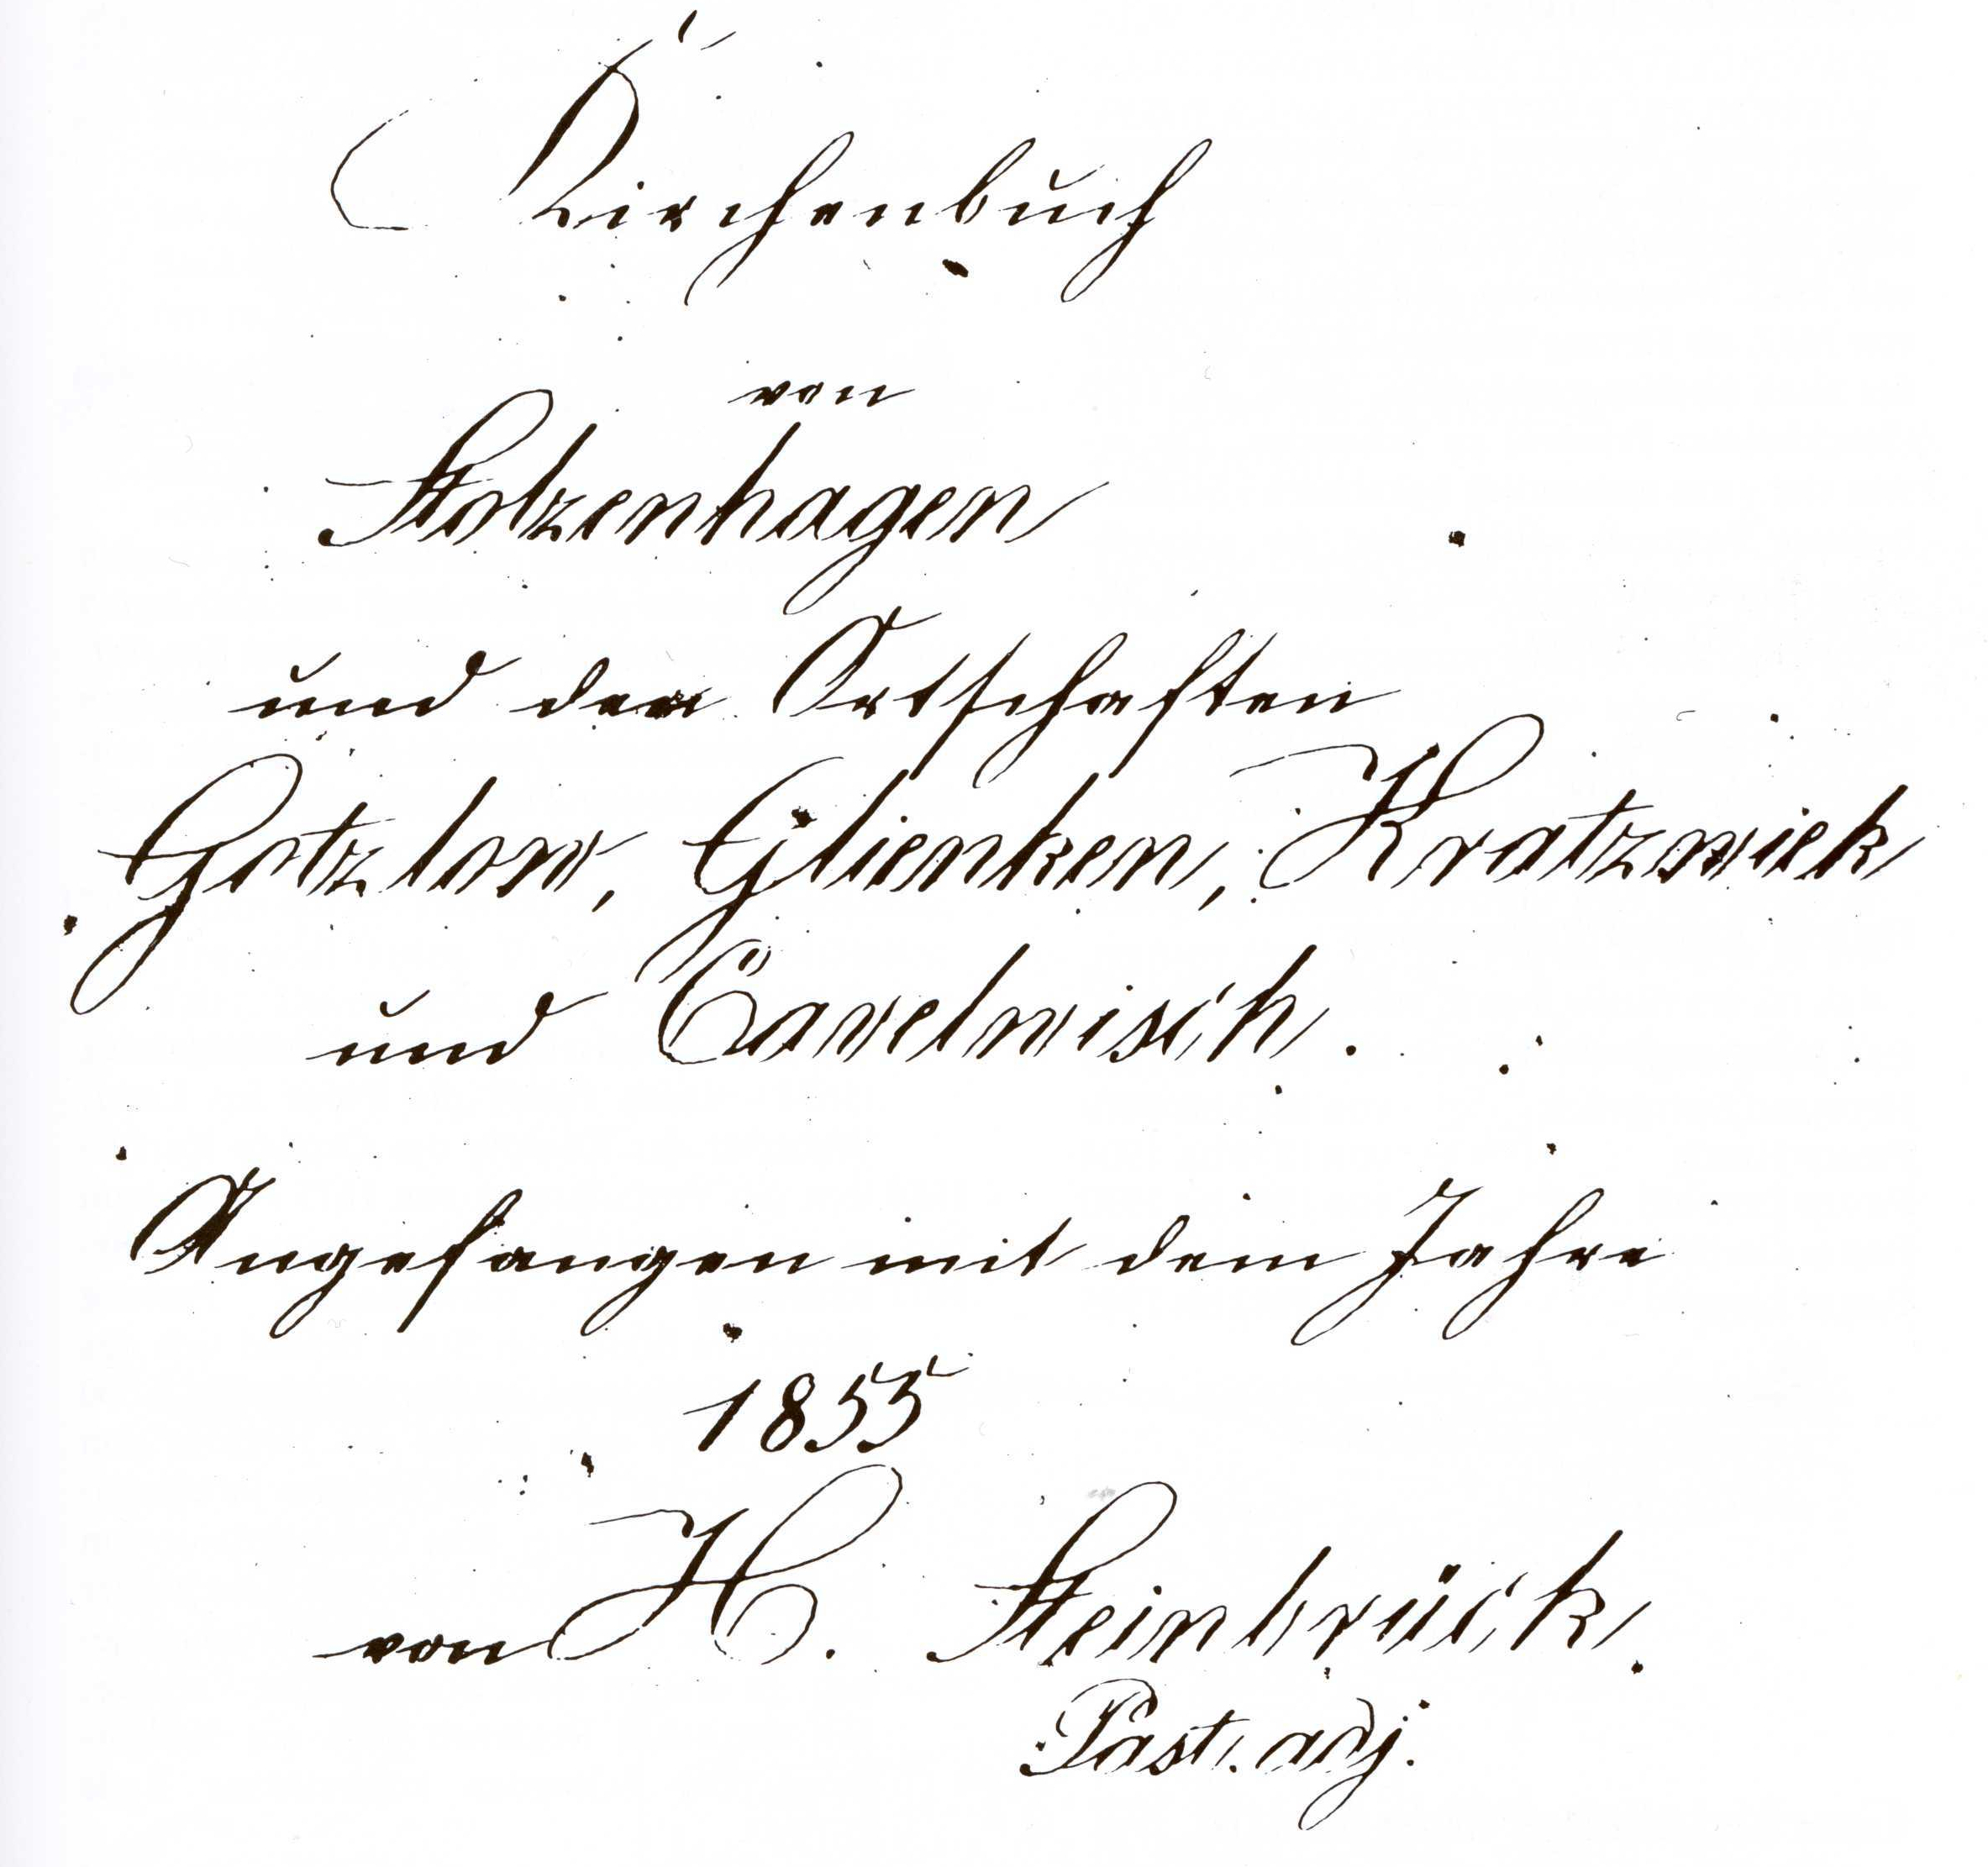 Kirchenbuch
von
Stolzenhagen
und der Ortschaften
Gotzlow, Glienken, Kratzwiek
und Cavelwisch.
Angefangen mit dem Jahre
1855
von H. Steinbrück.
Past. adj.